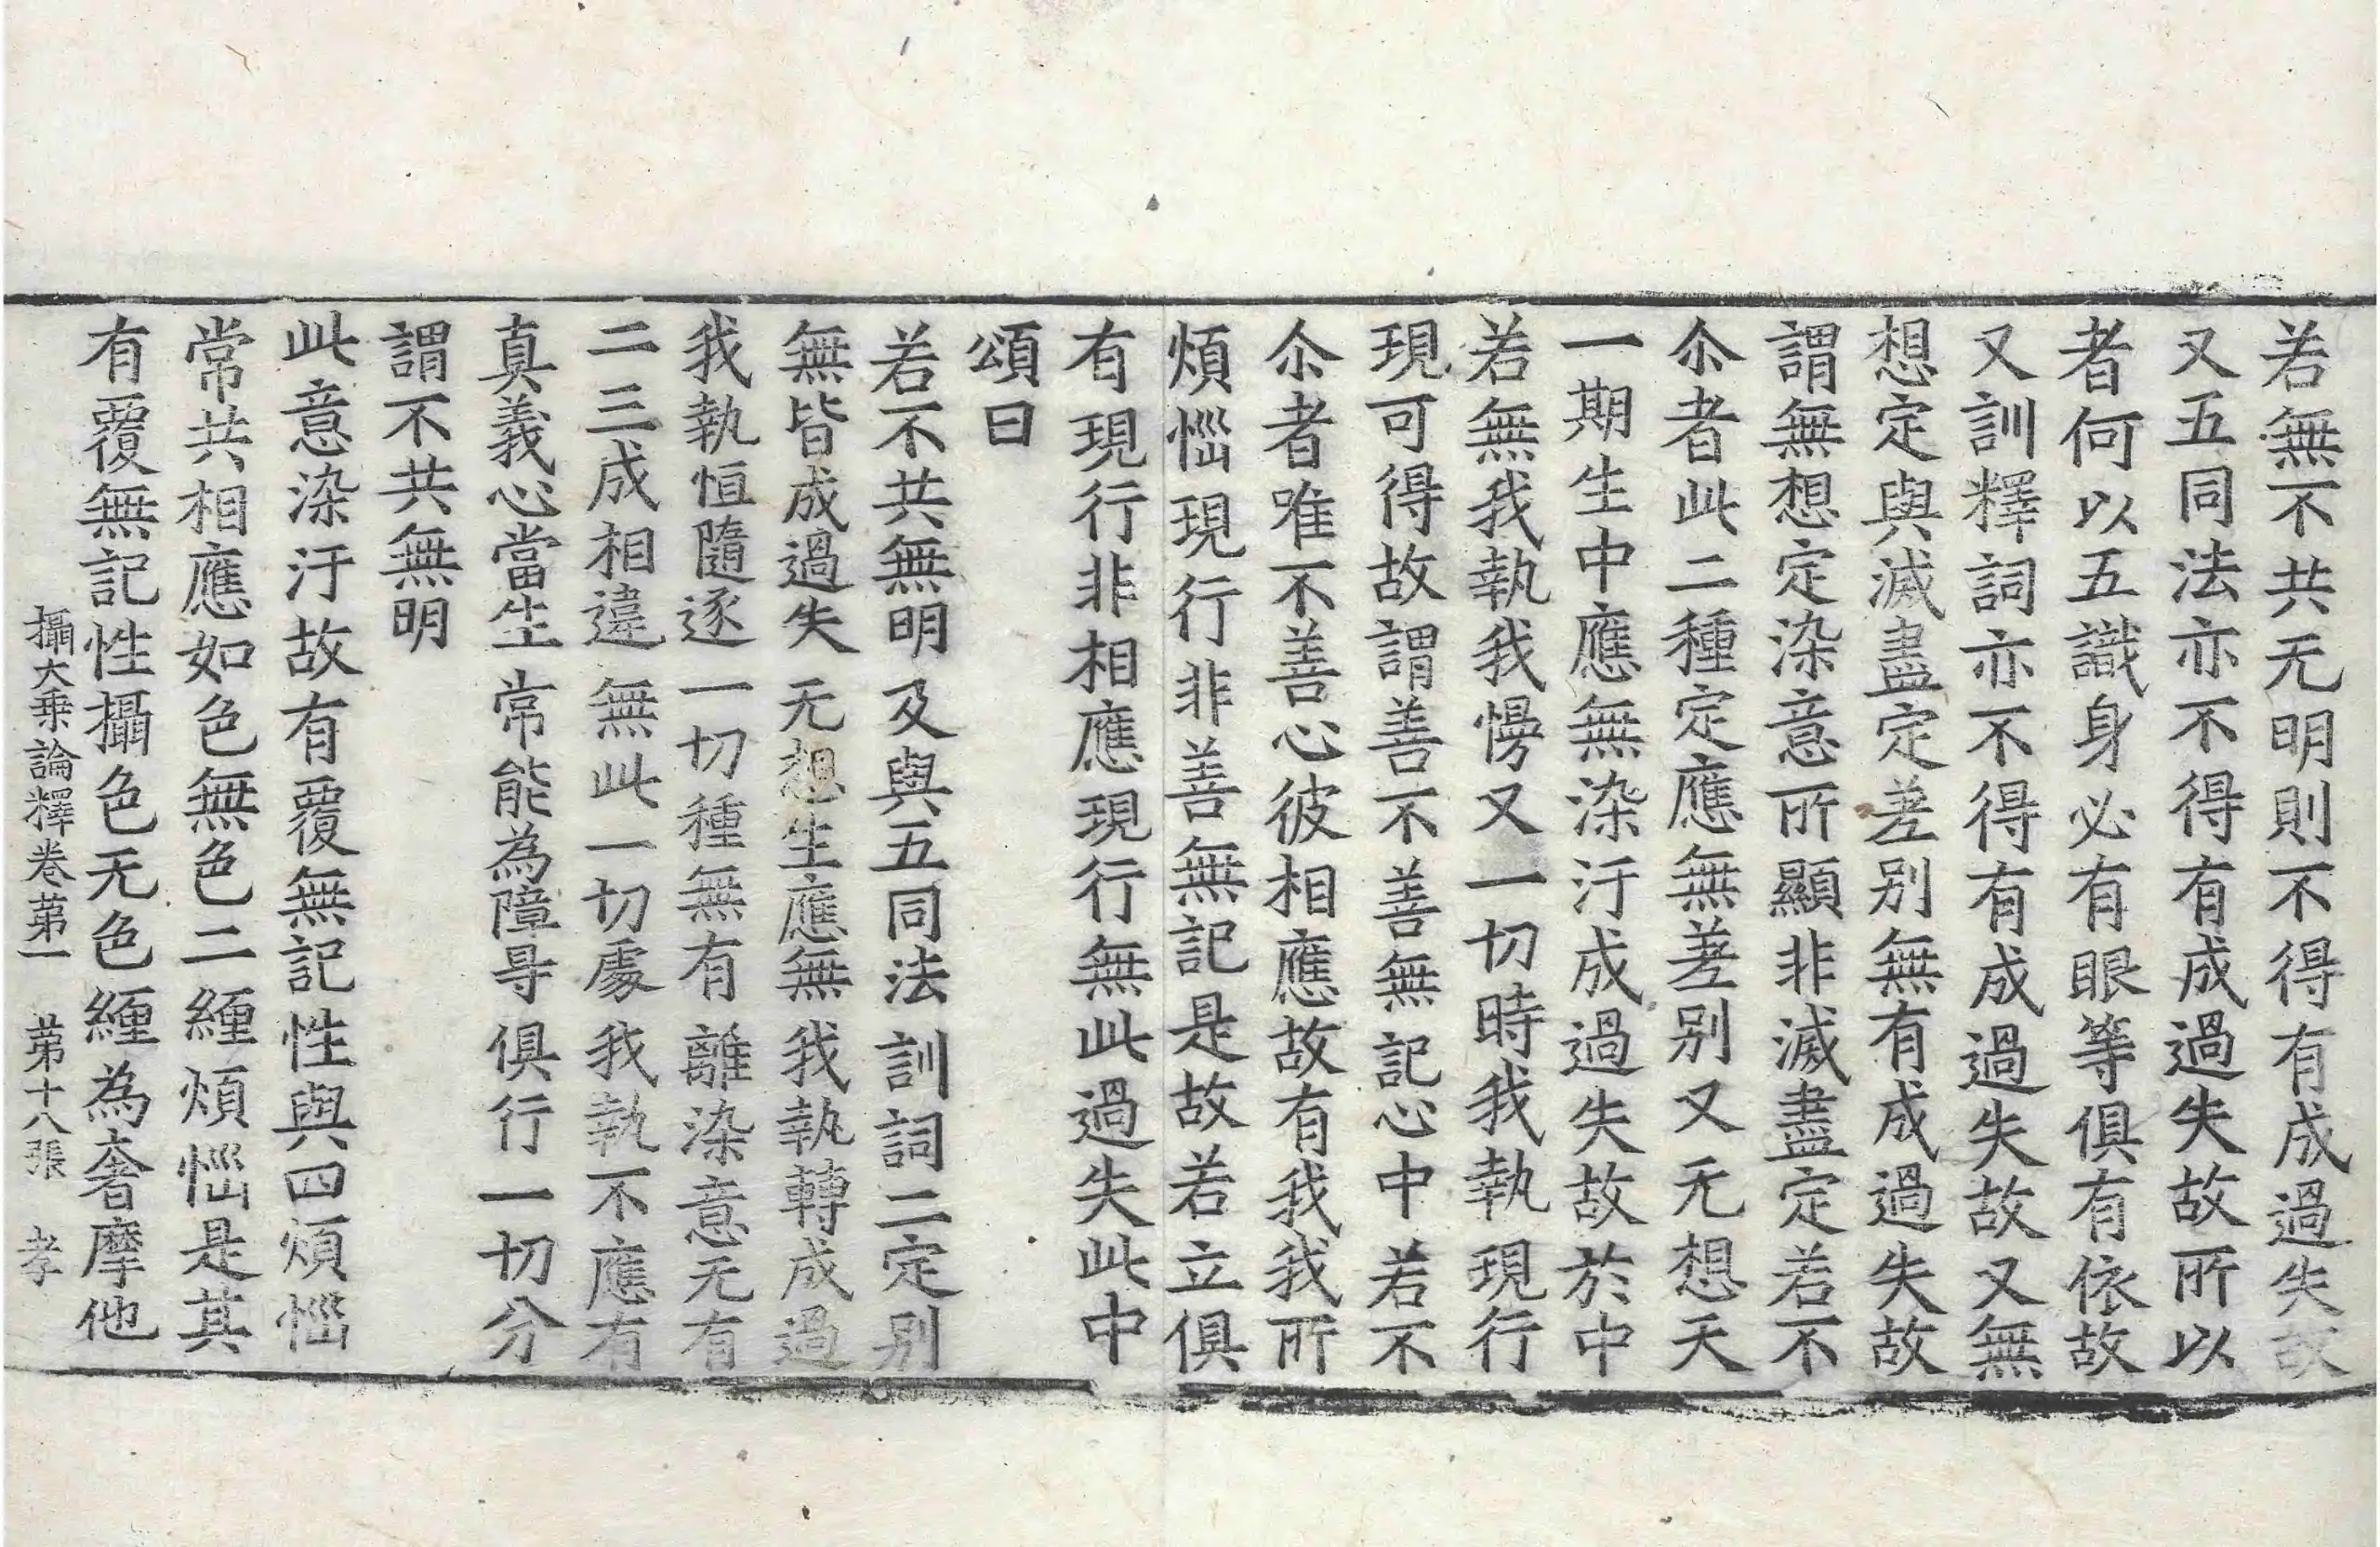 若無不共无明則不得有成過失故
又五同法亦不得有成過失故所以
者何以五識身必有眼等俱有依故
又訓釋詞亦不得有成過失故又無
想定與滅盡定差别無有成過失故
謂無想定染意所顯非滅盡定若不
尒者此二種定應無差别又无想天
一期生中應無染汙成過失故於中
若無我執我慢又一切時我執現行
現可得故謂善不善無記心中若不
尒者唯不善心彼相應故有我我所
煩惱現行非善無記是故若立俱
有現行非相應現行無此過失此中
頌曰
若不共無明 及與五同法 訓詞二定别
無皆成過失 无想生應無 我執轉成過
我執恒隨逐 一切種無有 離染意无有
二三成相違 無此一切處 我執不應有
真義心當生 常能為障㝵 俱行一切分
謂不共無明
此意染汙故有覆無記性與四煩惱
常共相應如色無色二纏煩惱是其
有覆無記性攝色无色纏為奢摩他
攝大乗論釋卷苐一 苐十八張 孝